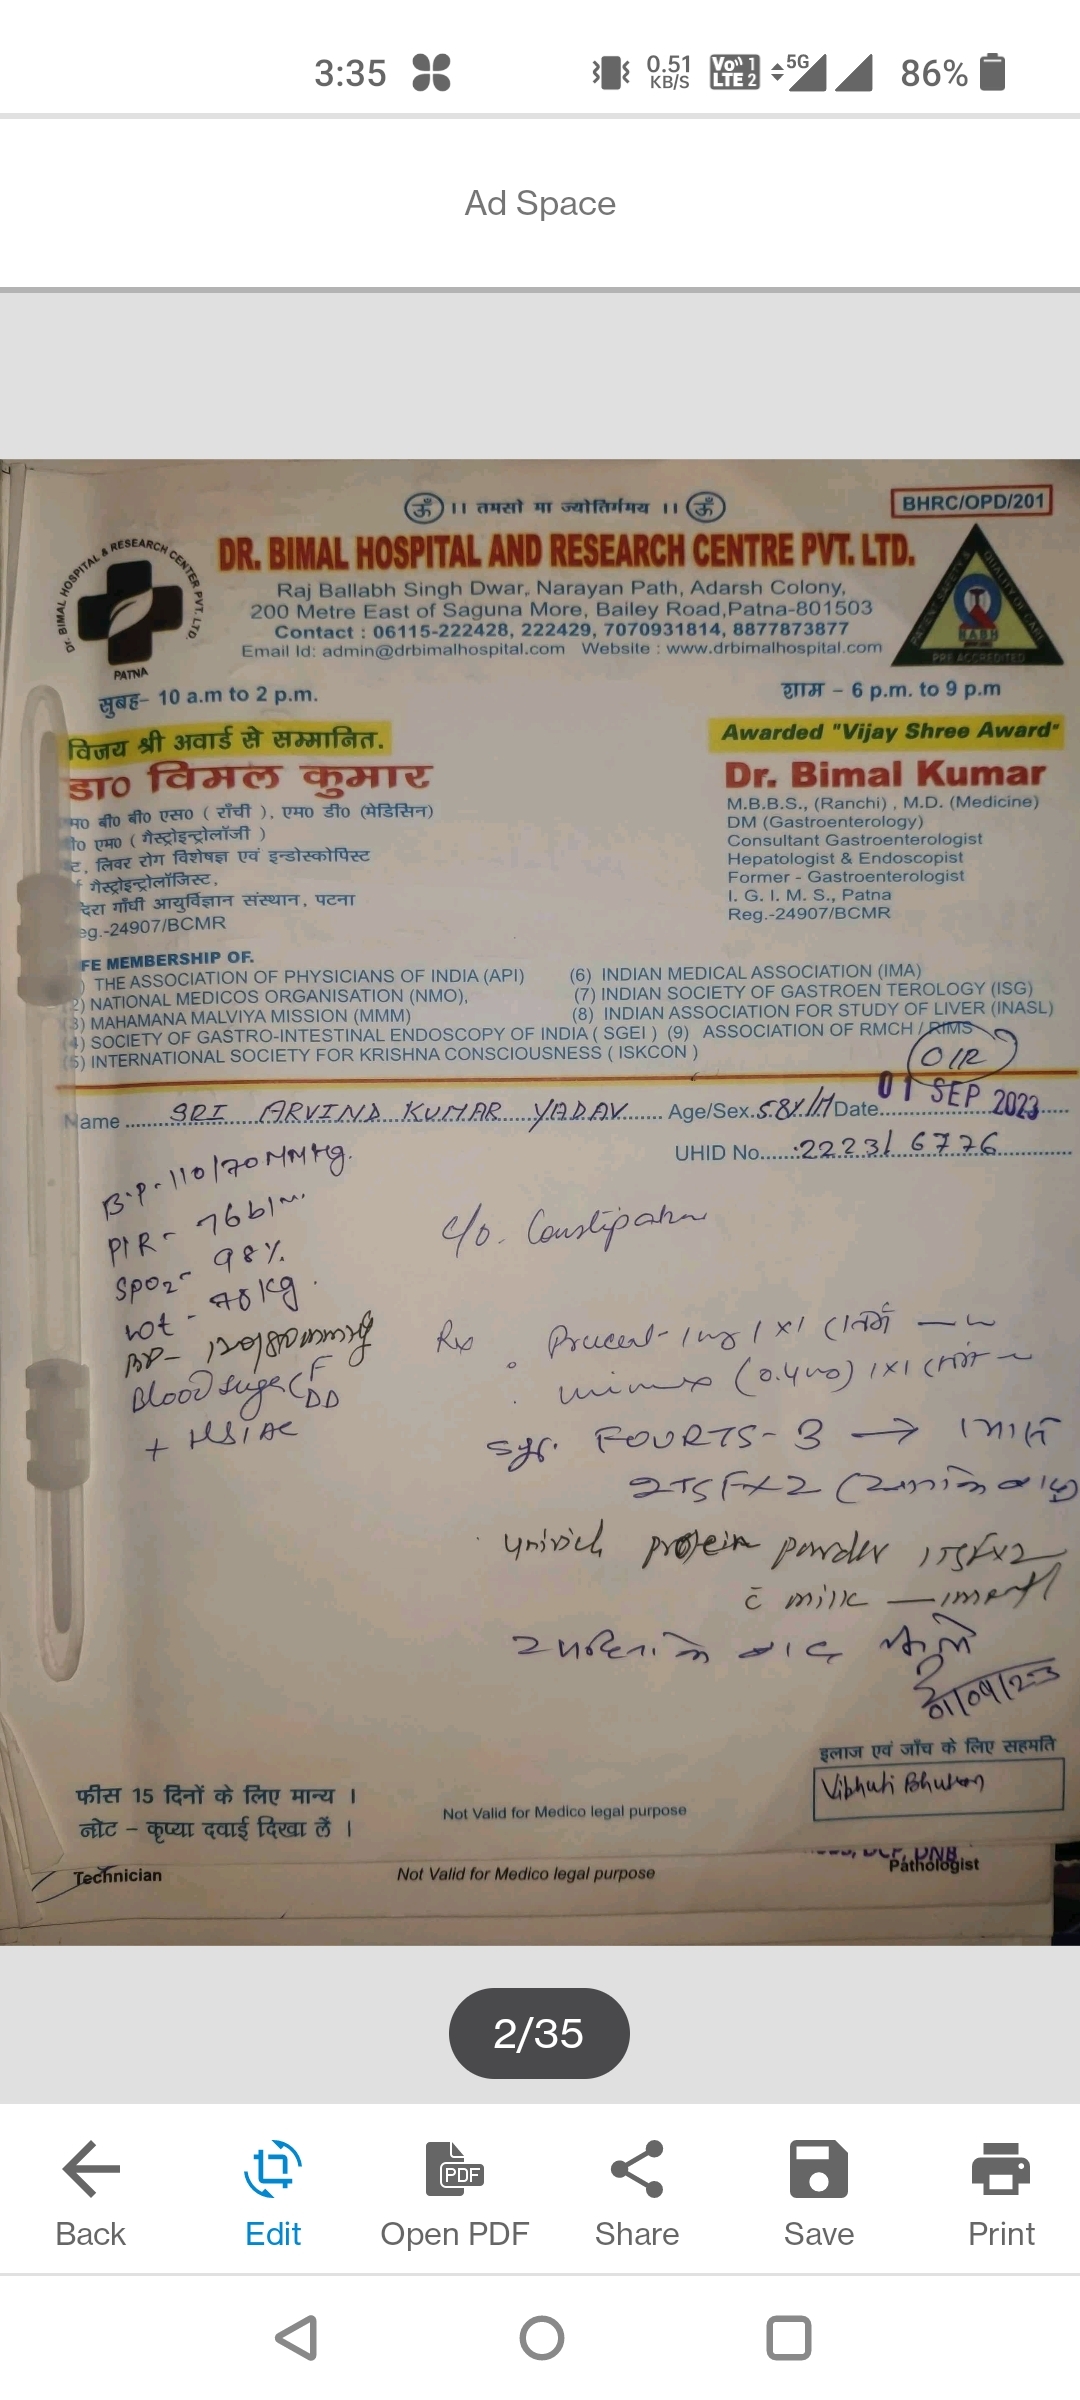 3:35
0.51 KB/S
Vo)) 1 LTE 2
5G
86%
Ad Space
।। तमसो मा ज्योतिर्गमय ।।
BHRC/OPD/201
DR. BIMAL HOSPITAL & RESEARCH CENTER PVT. LTD.
PATNA
DR. BIMAL HOSPITAL AND RESEARCH CENTRE PVT. LTD.
Raj Ballabh Singh Dwar, Narayan Path, Adarsh Colony,
200 Metre East of Saguna More, Bailey Road,Patna-801503
Contact : 06115-222428, 222429, 7070931814, 8877873877
Email Id: admin@drbimalhospital.com Website : www.drbimalhospital.com
NABH
PRE ACCREDITED
सुबह– 10 a.m to 2 p.m.
शाम – 6 p.m. to 9 p.m
विजय श्री अवार्ड से सम्मानित.
डा० विमल कुमार
बी० बी० एस० ( राँची ), एम० डी० (मेडिसिन)
एम० ( गैस्ट्रोइन्ट्रोलॉजी )
लिवर रोग विशेषज्ञ एवं इन्डोस्कोपिस्ट
गैस्ट्रोइन्ट्रोलॉजिस्ट,
गाँधी आयुर्विज्ञान संस्थान, पटना
eg.-24907/BCMR
Awarded "Vijay Shree Award"
Dr. Bimal Kumar
M.B.B.S., (Ranchi) , M.D. (Medicine)
DM (Gastroenterology)
Consultant Gastroenterologist
Hepatologist & Endoscopist
Former - Gastroenterologist
I. G. I. M. S., Patna
Reg.-24907/BCMR
FE MEMBERSHIP OF.
) THE ASSOCIATION OF PHYSICIANS OF INDIA (API)
2) NATIONAL MEDICOS ORGANISATION (NMO),
(3) MAHAMANA MALVIYA MISSION (MMM)
(4) SOCIETY OF GASTRO-INTESTINAL ENDOSCOPY OF INDIA ( SGEI ) (9) ASSOCIATION OF RMCH / RIMS
(5) INTERNATIONAL SOCIETY FOR KRISHNA CONSCIOUSNESS ( ISKCON )
(6) INDIAN MEDICAL ASSOCIATION (IMA)
(7) INDIAN SOCIETY OF GASTROEN TEROLOGY (ISG)
(8) INDIAN ASSOCIATION FOR STUDY OF LIVER (INASL)
Name SRI ARVIND KUMAR YADAV Age/Sex. 58Y/M Date 01 SEP 2023
UHID No. 2223/6776
B.P - 110/70 MMHg.
P/R - 76 b/m.
SPO2 - 98%.
wt - 78 kg.
BP - 120/80 mmHg
Blood Sugar F
+ HB1AC
C/o. Constipation
Rx
(0.4
Syr. FOURTS-B →
2TSFX2
protein powder 1TSFX2
c̄ milk
के बाद
01/09/23
इलाज एवं जाँच के लिए सहमति
Vibhuti Bhushan
फीस 15 दिनों के लिए मान्य ।
नोट – कृप्या दवाई दिखा लें ।
Not Valid for Medico legal purpose
Technician
Not Valid for Medico legal purpose
DCP, DNB
Pathologist
2/35
Back
Edit
PDF
Open PDF
Share
Save
Print